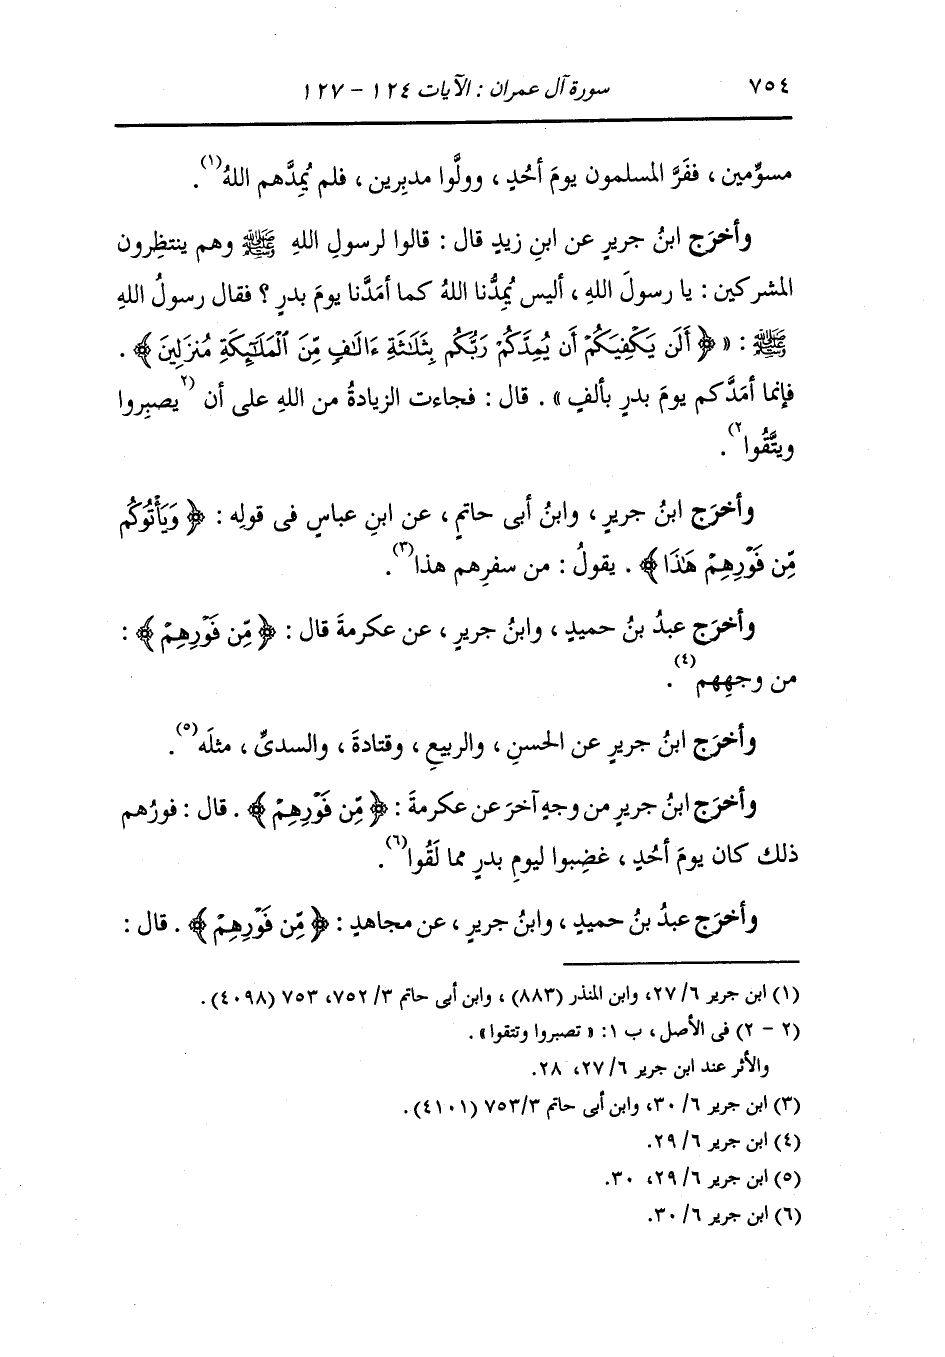 ٧٥٤
سورة آل عمران : الآيات ١٢٤ - ١٢٧
مسوِّمين ، ففَرَّ المسلمون يومَ أُحُدٍ ، وولَّوا مدبِرين ، فلم يُمِدَّهم اللهُ(١) .
وأخرَج ابنُ جريرٍ عن ابنِ زيدٍ قال : قالوا لرسولِ اللهِ ﷺ وهم ينتظِرون
المشركين : يا رسولَ اللهِ ، أليس يُمِدُّنا اللهُ كما أمَدَّنا يومَ بدرٍ ؟ فقال رسولُ اللهِ
ﷺ : « ﴿ أَلَن يَكْفِيَكُمْ أَن يُمِدَّكُمْ رَبُّكُم بِثَلَـٰثَةِ ءَالَـٰفٍ مِّنَ ٱلْمَلَـٰٓئِكَةِ مُنزَلِينَ ﴾ .
فإنما أمَدَّكم يومَ بدرٍ بألفٍ » . قال : فجاءت الزيادةُ من اللهِ على أن (٢ يصبِروا
ويتَّقُوا ٢) .
وأخرَج ابنُ جريرٍ ، وابنُ أبى حاتمٍ ، عن ابنِ عباسٍ فى قولِه : ﴿ وَيَأْتُوكُم
مِّن فَوْرِهِمْ هَـٰذَا ﴾ . يقولُ : من سفرِهم هذا(٣) .
وأخرَج عبدُ بنُ حميدٍ ، وابنُ جريرٍ ، عن عكرمةَ قال : ﴿ مِّن فَوْرِهِمْ ﴾ :
من وجهِهم(٤) .
وأخرَج ابنُ جريرٍ عن الحسنِ ، والربيعِ ، وقتادةَ ، والسدىِّ ، مثلَه(٥) .
وأخرَج ابنُ جريرٍ من وجهٍ آخرَ عن عكرمةَ : ﴿ مِّن فَوْرِهِمْ ﴾ . قال : فورُهم
ذلك كان يومَ أُحُدٍ ، غضِبوا ليومِ بدرٍ مما لَقُوا(٦) .
وأخرَج عبدُ بنُ حميدٍ ، وابنُ جريرٍ ، عن مجاهدٍ : ﴿ مِّن فَوْرِهِمْ ﴾ . قال :
(١) ابن جرير ٦/ ٢٧، وابن المنذر (٨٨٣) ، وابن أبى حاتم ٣/ ٧٥٢، ٧٥٣ (٤٠٩٨) .
(٢ - ٢) فى الأصل ، ب ١: « تصبروا وتتقوا» .
والأثر عند ابن جرير ٦/ ٢٧، ٢٨.
(٣) ابن جرير ٦/ ٣٠، وابن أبى حاتم ٧٥٣/٣ (٤١٠١) .
(٤) ابن جرير ٦/ ٢٩.
(٥) ابن جرير ٦/ ٢٩، ٣٠.
(٦) ابن جرير ٦/ ٣٠.